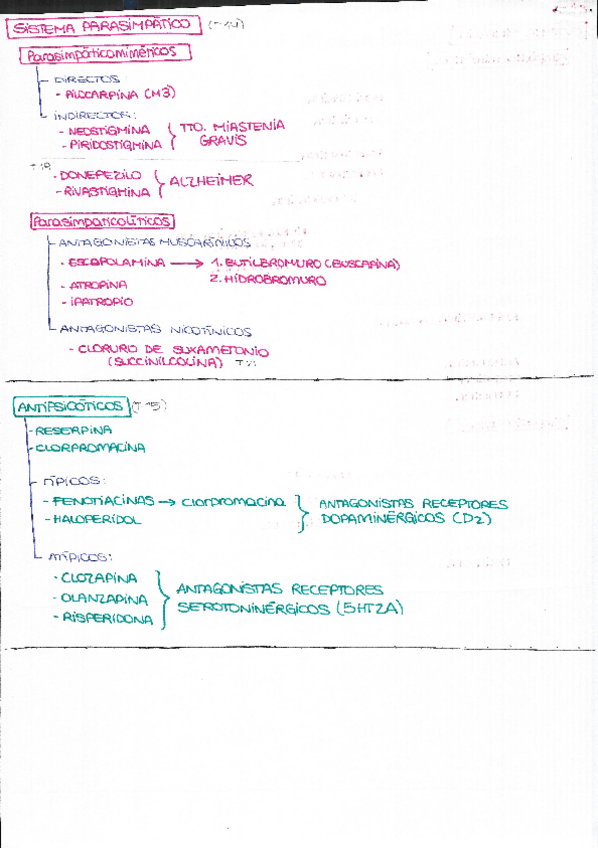 SISTEMA PARASIMPÁTICO (T14)
Parasimpáticomiméticos
- DIRECTOS
- PILOCARPINA (M3)
- INDIRECTOS:
- NEOSTIGMINA
- PIRIDOSTIGMINA
TTO. MIASTENIA
GRAVIS
T19
- DONEPEZILO
- RIVASTIGMINA
ALZHEIMER
Parasimpaticolíticos
- ANTAGONISTAS MUSCARÍNICOS
- ESCOPOLAMINA → 1. BUTILBROMURO (BUSCAPINA)
2. HIDROBROMURO
- ATROPINA
- IPATROPIO
- ANTAGONISTAS NICOTÍNICOS
- CLORURO DE SUXAMETONIO
(SUCCINILCOLINA) T21
ANTIPSICÓTICOS (T15)
- RESERPINA
- CLORPROMACINA
- TÍPICOS:
- FENOTIACINAS → Clorpromacina
- HALOPERIDOL
ANTAGONISTAS RECEPTORES
DOPAMINÉRGICOS (D2)
- ATÍPICOS:
- CLOZAPINA
- OLANZAPINA
- RISPERIDONA
ANTAGONISTAS RECEPTORES
SEROTONINÉRGICOS (5HT2A)